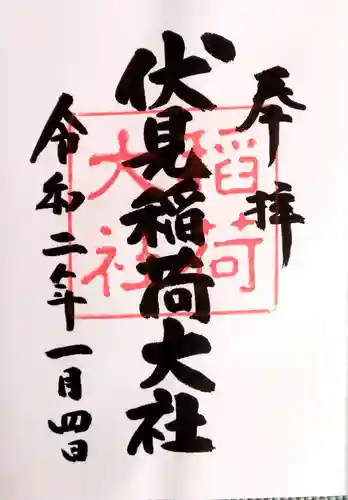 奉拝
伏見稲荷大社
令和二年一月四日
稲荷
大社